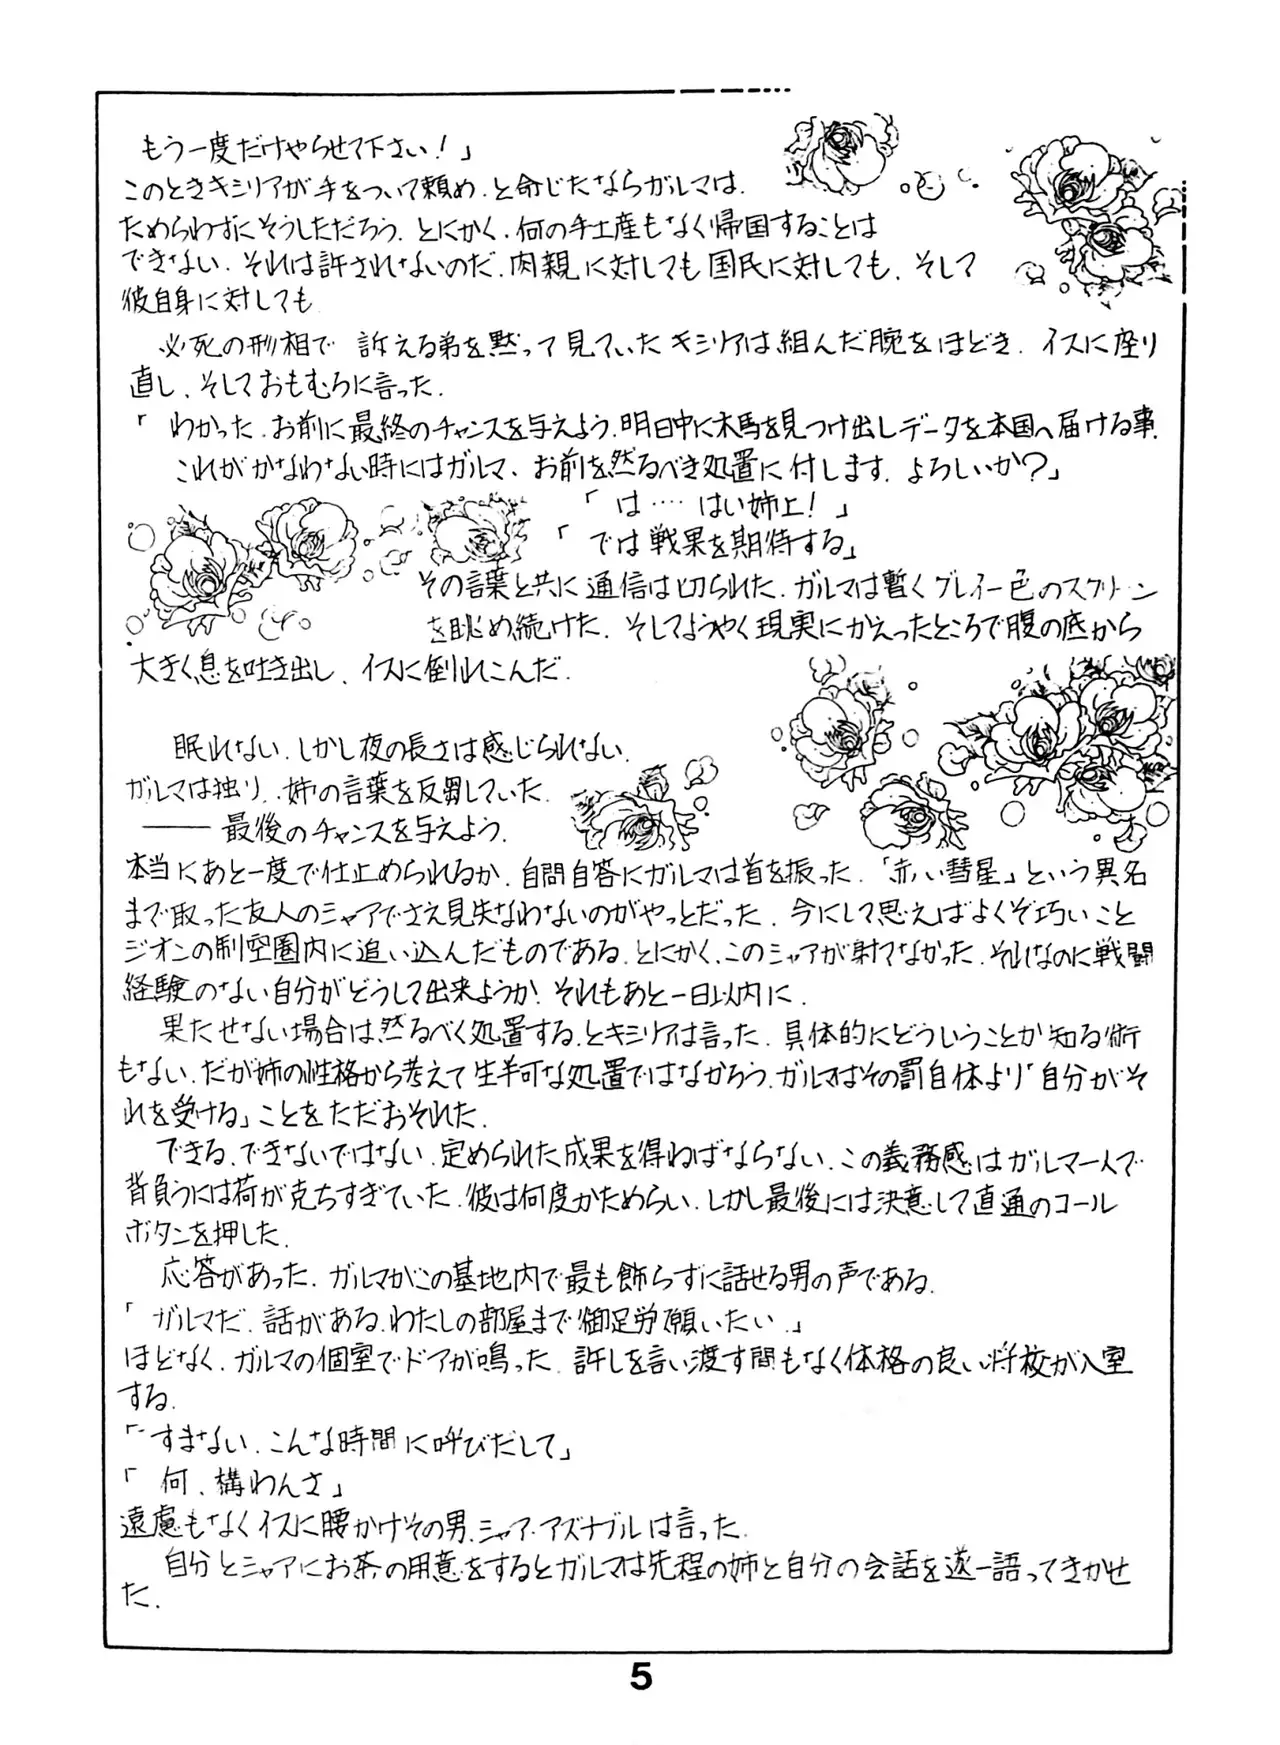 もう一度だけやらせて下さい！」
このときキシリアが手をついて頼め．と命じたならガルマは．
ためらわずにそうしただろう．とにかく．何の手土産もなく帰国することは
できない．それは許されないのだ．肉親に対しても国民に対しても．そして
彼自身に対しても
必死の形相で 訴える弟を黙って見ていたキシリアは組んだ腕をほどき．イスに座り
直し、そしておもむろに言った．
「わかった．お前に最終のチャンスを与えよう．明日中に木馬を見つけ出しデータを本国へ届ける事．
これがかなわない時にはガルマ、お前を然るべき処置に付します．よろしいか？」
「は‥‥はい姉上！」
「では戦果を期待する」
その言葉と共に通信は切られた．ガルマは暫くグレイ一色のスクリーン
を眺め続けた．そしてようやく現実にかえったところで腹の底から
大きく息を吐き出し、イスに倒れこんだ．
眠れない．しかし夜の長さは感じられない．
ガルマは独り．姉の言葉を反芻していた．
――最後のチャンスを与えよう．
本当に、あと一度で仕止められるか．自問自答にガルマは首を振った．「赤い彗星」という異名
まで取った友人のシャアでさえ見失なわないのがやっとだった．今にして思えばよくぞ巧いこと
ジオンの制空圏内に追い込んだものである．とにかく、このシャアが射てなかった．それなのに戦闘
経験のない自分がどうして出来ようか．それもあと一日以内に．
果たせない場合は然るべく処置する．とキシリアは言った．具体的にどういうことか知る術
もない．だが姉の性格から考えて生半可な処置ではなかろう．ガルマはその罰自体より「自分がそ
れを受ける」ことをただおそれた．
できる、できないではない．定められた成果を得ねばならない．この義務感はガルマ一人で
背負うには荷が克ちすぎていた．彼は何度かためらい．しかし最後には決意して直通のコール
ボタンを押した．
応答があった．ガルマがこの基地内で最も飾らずに話せる男の声である．
「ガルマだ．話がある．わたしの部屋まで御足労願いたい．」
ほどなく．ガルマの個室でドアが鳴った．許しを言い渡す間もなく体格の良い将校が入室
する．
「すまない．こんな時間に呼びだして」
「何、構わんさ」
遠慮もなくイスに腰かけその男、シャア・アズナブルは言った．
自分とシャアにお茶の用意をするとガルマは先程の姉と自分の会話を逐一語ってきかせ
た．
5